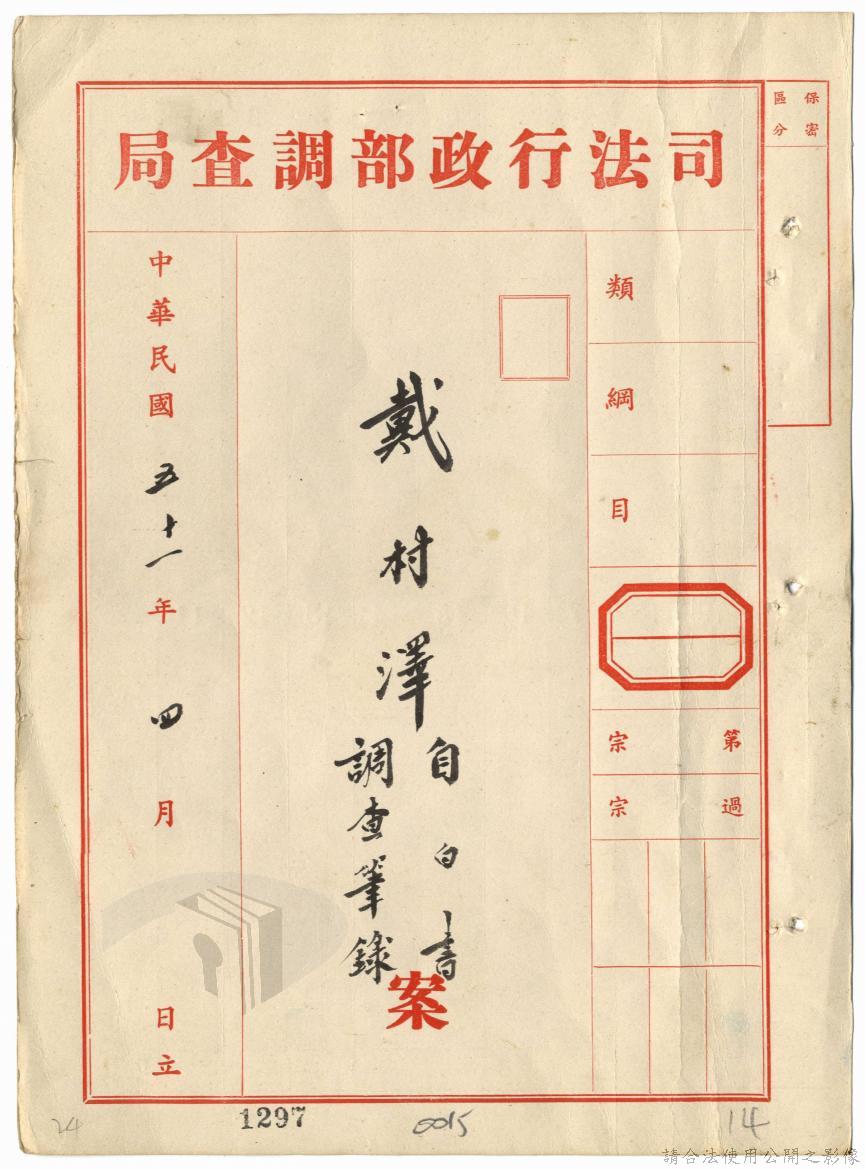 保密
區分
司法行政部調查局
類
綱
目
第 宗
過 宗
戴村澤
自白書
調查筆錄
案
中華民國五十一年四月 日立
24
1297
0015
14
請合法使用公開之影像